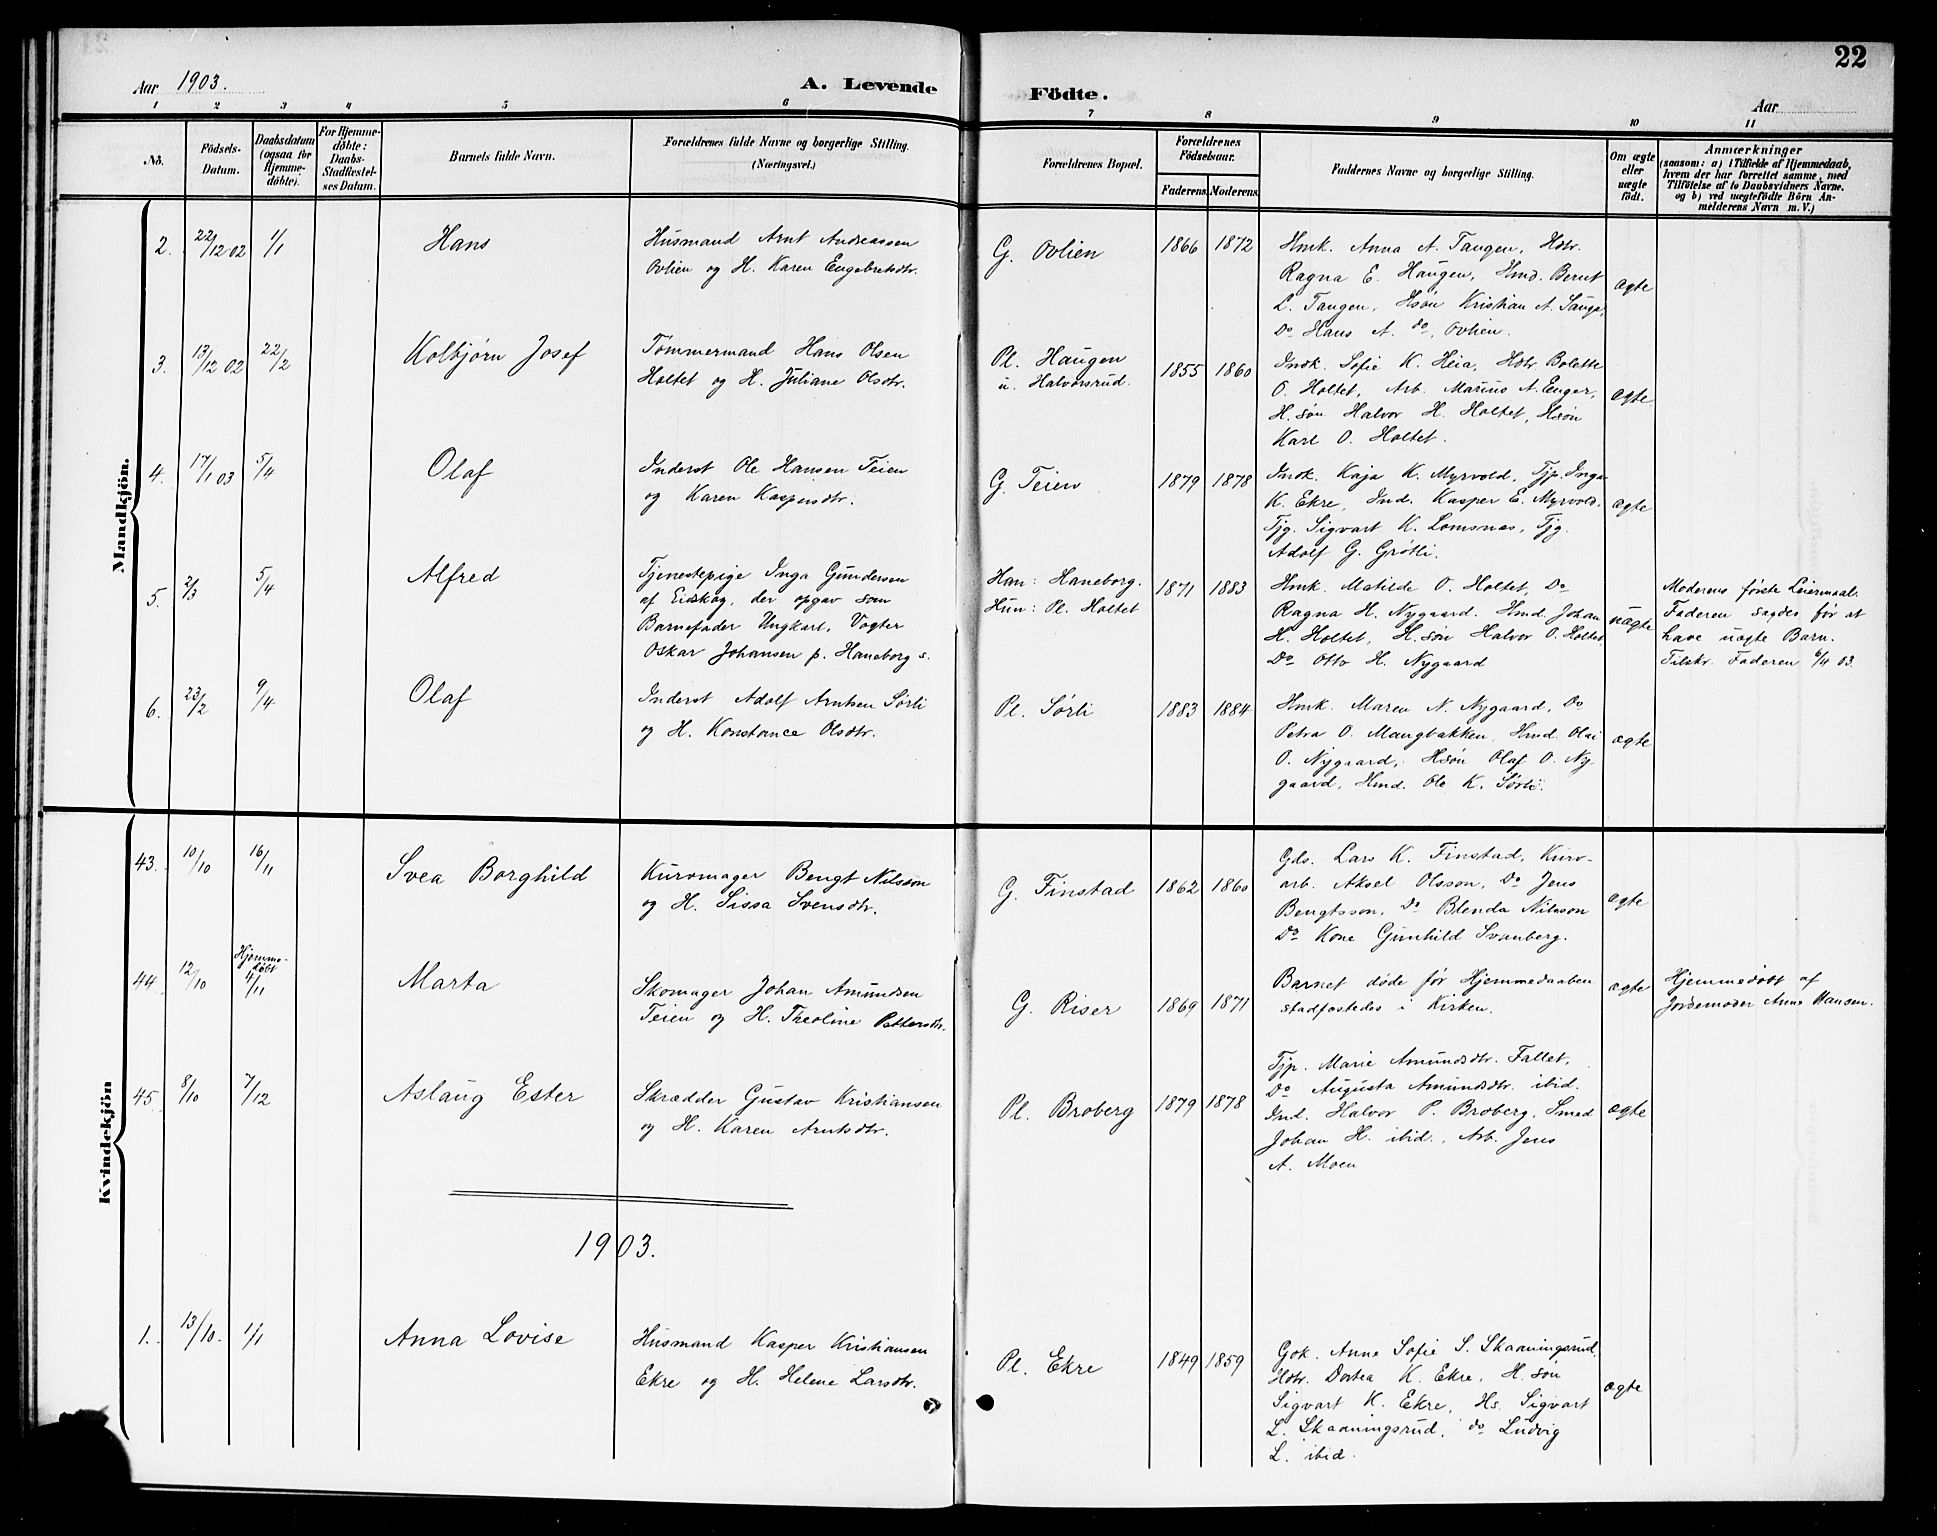 22
Aar 1903.
A. Levende Födte.
Aar
1 2 3 4 5 6 7 8 9 10 11
No.
Födsels-Datum.
Daabsdatum (ogsaa for Hjemme-döbte).
For Hjemme-döbte: Daabs-Stadfæstel-ses Datum.
Barnets fulde Navn.
Forældrenes fulde Navne og borgerlige Stilling. (Næringsvei.)
Forældrenes Bopæl.
Forældrenes Födselsaar.
Faderens. Moderens.
Faddernes Navne og borgerlige Stilling.
Om ægte eller uægte födt.
Anmærkninger
(saasom: a) i Tilfælde af Hjemmedaab,
hvem der har forrettet samme, med
Tilföielse af to Daabsvidners Navne.
og b) ved uægtefödte Börn An-
melderens Navn m. V.)
Mandkjön.
2. 22/12 02 1/1 Hans
Husmand Arnt Andreassen
Ovlien og H. Karen Engebretsdtr.
G. Ovlien 1866 1872
Hmk. Anna A. Tangen, Hdtr.
Ragna E. Haugen, Hmd. Bernt
L. Tangen, Hsøn Kristian A.
Do Hans A. do, Ovlien.
ægte
3. 13/12 02 22/2 Kolbjørn Josef
Tømmermand Hans Olsen
Holtet og H. Juliane Olsdtr.
Pl. Haugen
u. Halvorsrud. 1855 1860
Indk. Sofie K. Heia, Hdtr Bolette
O. Holtet, Arb. Marius A. Enger,
H. søn Halvor H. Holtet, Hsøn
Karl O. Holtet.
ægte
4. 17/1 03 5/4 Olaf
Inderst Ole Hansen Teien
og Karen Kaspersdtr.
G. Teien 1879 1878
Indk. Kaja K. Myrvold, Tjp. Inga
K. Ekre, Ind. Kasper E. Myrvold,
Tjg. Sigvart K. Lomsnes, Tjg.
Adolf G. Grøtli.
ægte
5. 2/3 5/4 Alfred
Tjenestepige Inga Gundersen
af Eidskog, der opgav som
Barnefader Ungkarl, Vogter
Oskar Johansen p. Haneborg s.
Han: Haneborg.
Hun: Pl. Holtet 1871 1883
Hmk. Matilde O. Holtet, Do
Ragna H. Nygaard. Hmd. Johan
H. Holtet, H. søn Halvor O. Holtet
Do Otto H. Nygaard
uægte
Moderens første Leiermaal.
Faderen sagdes før at
have uægte Barn.
Tilskr. Faderen 6/4 03.
6. 23/2 9/4 Olaf
Inderst Adolf Arntsen Sørli
og H. Konstance Olsdtr.
Pl. Sørli 1883 1884
Hmk. Maren N. Nygaard, Do
Petra O. Mangbakken, Hmd. Olai
O. Nygaard, Hsøn Olaf O. Ny-
gaard, Hmd. Ole K. Sørli.
ægte
Kvindekjön
43. 10/10 16/11 Svea Borghild
Kurvmager Bengt Nilsson
og H. Sissa Svensdtr.
G. Finstad 1862 1860
Gds. Lars K. Finstad, Kurv-
arb. Aksel Olsson, Do Jens
Bengtsson, Do Blenda Nilsson
Do Kone Gunhild Svanberg.
ægte
44. 12/10 Hjemme-døbt 4/11 Marta
Skomager Johan Amundsen
Teien og H. Theoline Pettersdtr.
G. Riser 1869 1871
Barnet døde før Hjemmedaaben
stadfæstedes i Kirken.
ægte
Hjemmedøbt af
Jordemoder Anne Hansen.
45. 8/10 7/12 Aslaug Ester
Skrædder Gustav Kristiansen
og H. Karen Arntsdtr.
Pl. Broberg 1879 1878
Tjp. Marie Amundsdtr. Fallet,
Do Augusta Amundsdtr. ibid.
Ind. Halvor P. Broberg, Smed
Johan H. ibid., Arb. Jens
A. Moen
ægte
1903.
1. 13/10 1/1 Anna Lovise
Husmand Kasper Kristiansen
Ekre og H. Helene Larsdtr.
Pl. Ekre 1849 1859
Gok. Anne Sofie S. Skaaningsrud,
Hdtr. Dortea K. Ekre, H. søn
Sigvart K. Ekre, Hs. Sigvart
L. Skaaningsrud, do Ludvig
L. ibid.
ægte